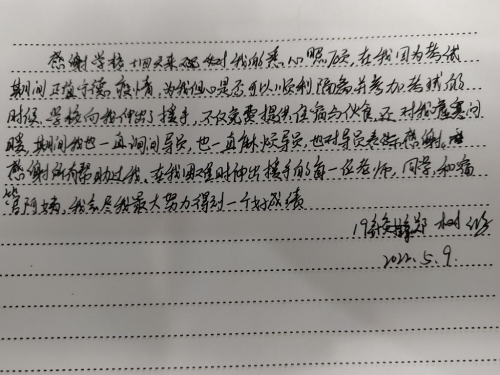 感谢学校一回又来观以对我的悉心照顾，在我因为考试
期间正值宁德疫情，为我担心是否可以顺利隔离并参加考球的
时候，学校向我伸出了援手，不仅免费提供住宿与伙食，还对我嘘寒问
暖，期间我也一直询问导员，也一直麻烦导员，也对导员表示感谢。
感谢所有帮助过我，在我困难时伸出援手的每一位老师，同学和宿
管阿姨，我会尽我最大努力得到一个好成绩
2022.5.9.